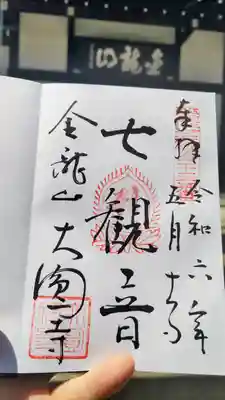 金龍山
奉拝
令和六年
五月十
七觀音
金龍山 大圓寺